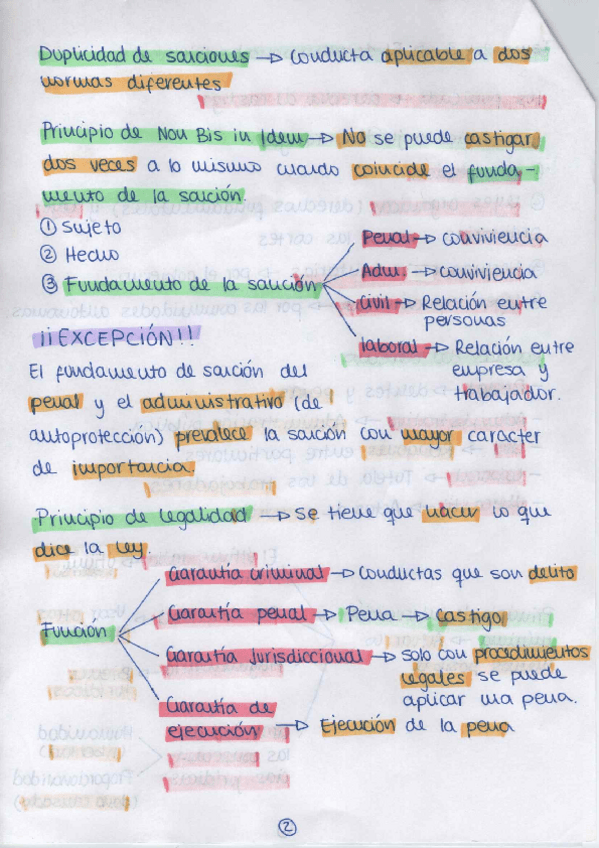 Duplicidad de sanciones → Conducta aplicable a dos
normas diferentes
Principio de Non Bis in Idem → No se puede castigar
dos veces a lo mismo cuando coincide el funda-
mento de la sanción.
① Sujeto
② Hecho
③ Fundamento de la sanción
Penal → conviviencia
Adm. → conviviencia
Civil → Relación entre
personas
laboral → Relación entre
empresa y
trabajador.
¡¡EXCEPCIÓN!!
El fundamento de sanción del
penal y el administrativo (de
autoprotección) prevalece la sanción con mayor caracter
de importancia.
Principio de legalidad → Se tiene que hacer lo que
dice la ley.
Función
Garantía criminal → Conductas que son delito
Garantía penal → Pena → castigo
Garantía Jurisdiccional → Solo con procedimientos
legales se puede
aplicar una pena.
Garantía de
ejecución → Ejecución de la pena
②